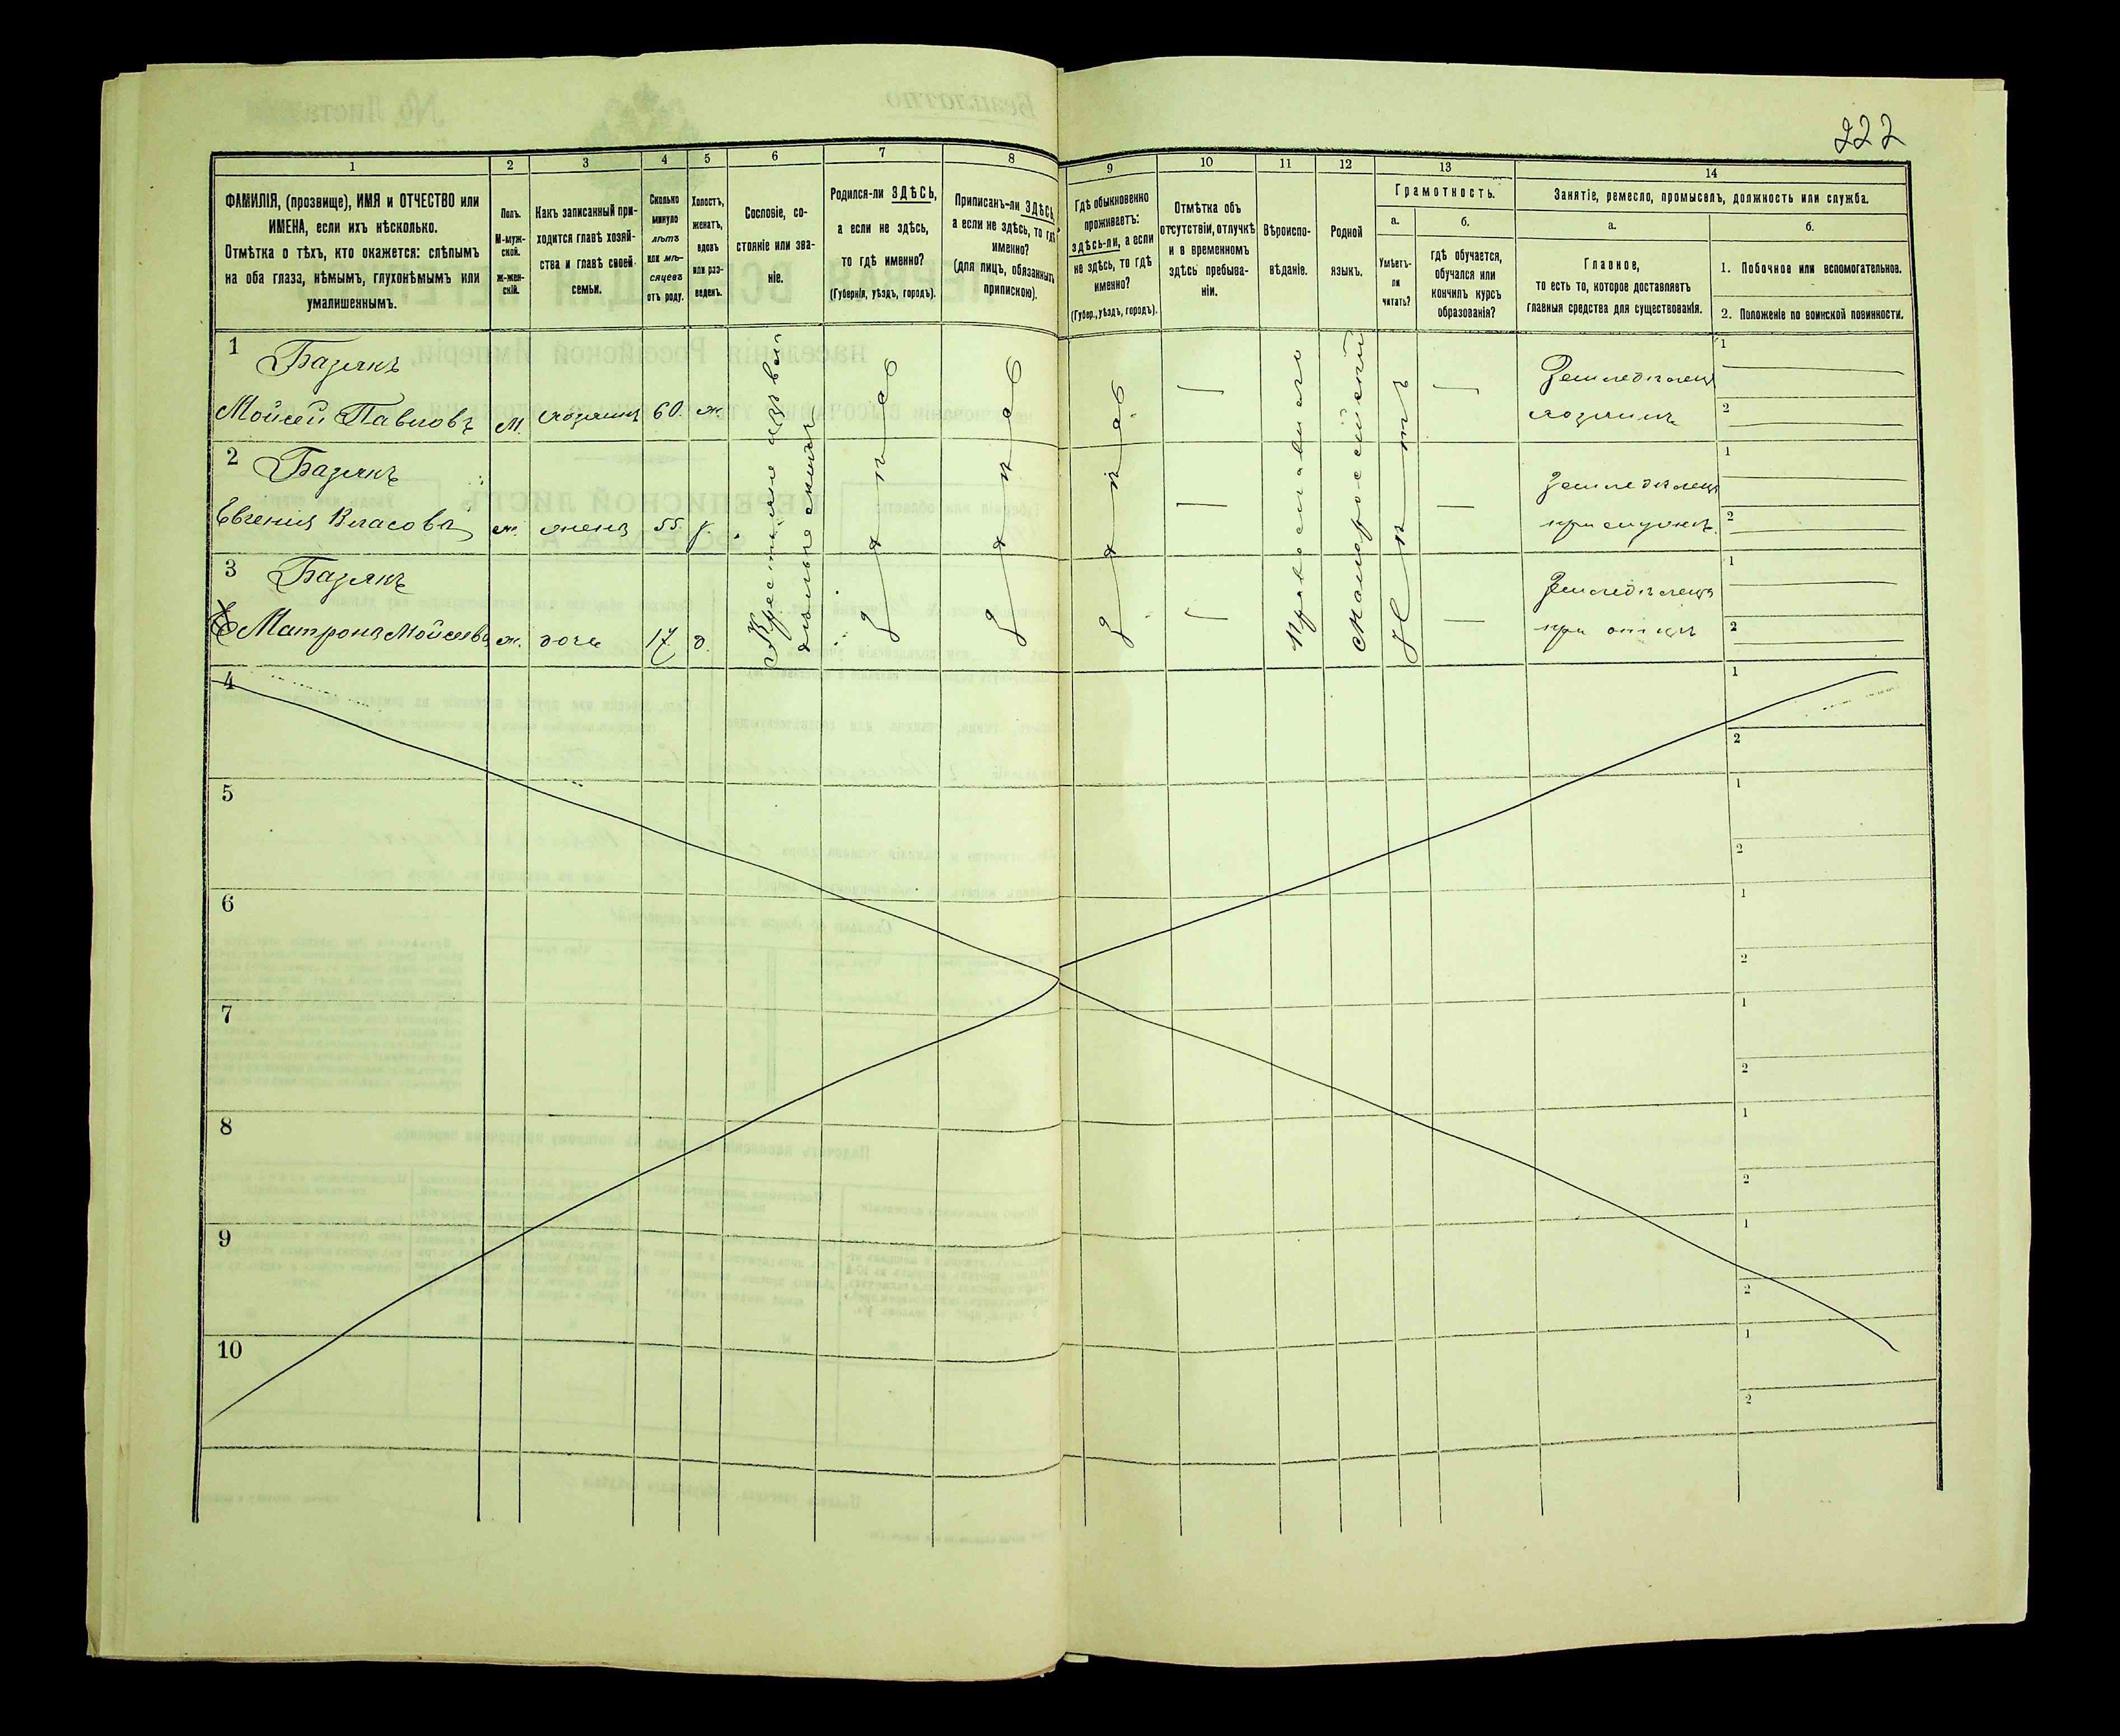 222
1
2
3
4
5
6
7
8
9
10
11
12
13
14
ФАМИЛІЯ, (прозвище), ИМЯ и ОТЧЕСТВО или
ИМЕНА, если ихъ нѣсколько.
Отмѣтка о тѣхъ, кто окажется: слѣпымъ
на оба глаза, нѣмымъ, глухонѣмымъ или
умалишеннымъ.
Полъ.
М-муж-
ской.
Ж-жен-
скій.
Какъ записанный при-
ходится главѣ хозяй-
ства и главѣ своей
семьи.
Сколько
минуло
лѣтъ
или мѣ-
сяцевъ
отъ роду.
Холостъ,
женатъ,
вдовъ
или раз-
веденъ.
Сословіе, со-
стояніе или зва-
ніе.
Родился-ли ЗДѢСЬ,
а если не здѣсь,
то гдѣ именно?
(Губернія, уѣздъ, городъ).
Приписанъ-ли ЗДѢСЬ,
а если не здѣсь, то гдѣ
именно?
(для лицъ, обязанныхъ
припискою).
Гдѣ обыкновенно
проживаетъ:
здѣсь-ли, а если
не здѣсь, то гдѣ
именно?
(Губер., уѣздъ, городъ).
Отмѣтка объ
отсутствіи, отлучкѣ
и о временномъ
здѣсь пребыва-
ніи.
Вѣроиспо-
вѣданіе.
Родной
языкъ.
Грамотность.
а.
Умѣетъ-
ли
читать?
б.
гдѣ обучается,
обучался или
кончилъ курсъ
образованія?
Занятіе, ремесло, промыселъ, должность или служба.
а.
Главное,
то есть то, которое доставляетъ
главныя средства для существованія.
б.
1. Побочное или вспомогательное.
2. Положеніе по воинской повинности.
1 Базякъ
Мойсей Павловъ м. хозяинъ 60. ж.
Земледѣлецъ
хозяинъ
1
2
2 Базякъ
Евгенія Власова ж. жена 55.
Земледѣлецъ
при мужѣ
1
2
3 Базякъ
Матрона Мойсеева ж. дочь 17 д.
Земледѣлецъ
при отцѣ
1
2
Крестьяне изъ
Здѣсь
Здѣсь
Здѣсь
Православное
Малороссійскій
Нѣтъ
4
1
2
5
1
2
6
1
2
7
1
2
8
1
2
9
1
2
10
1
2